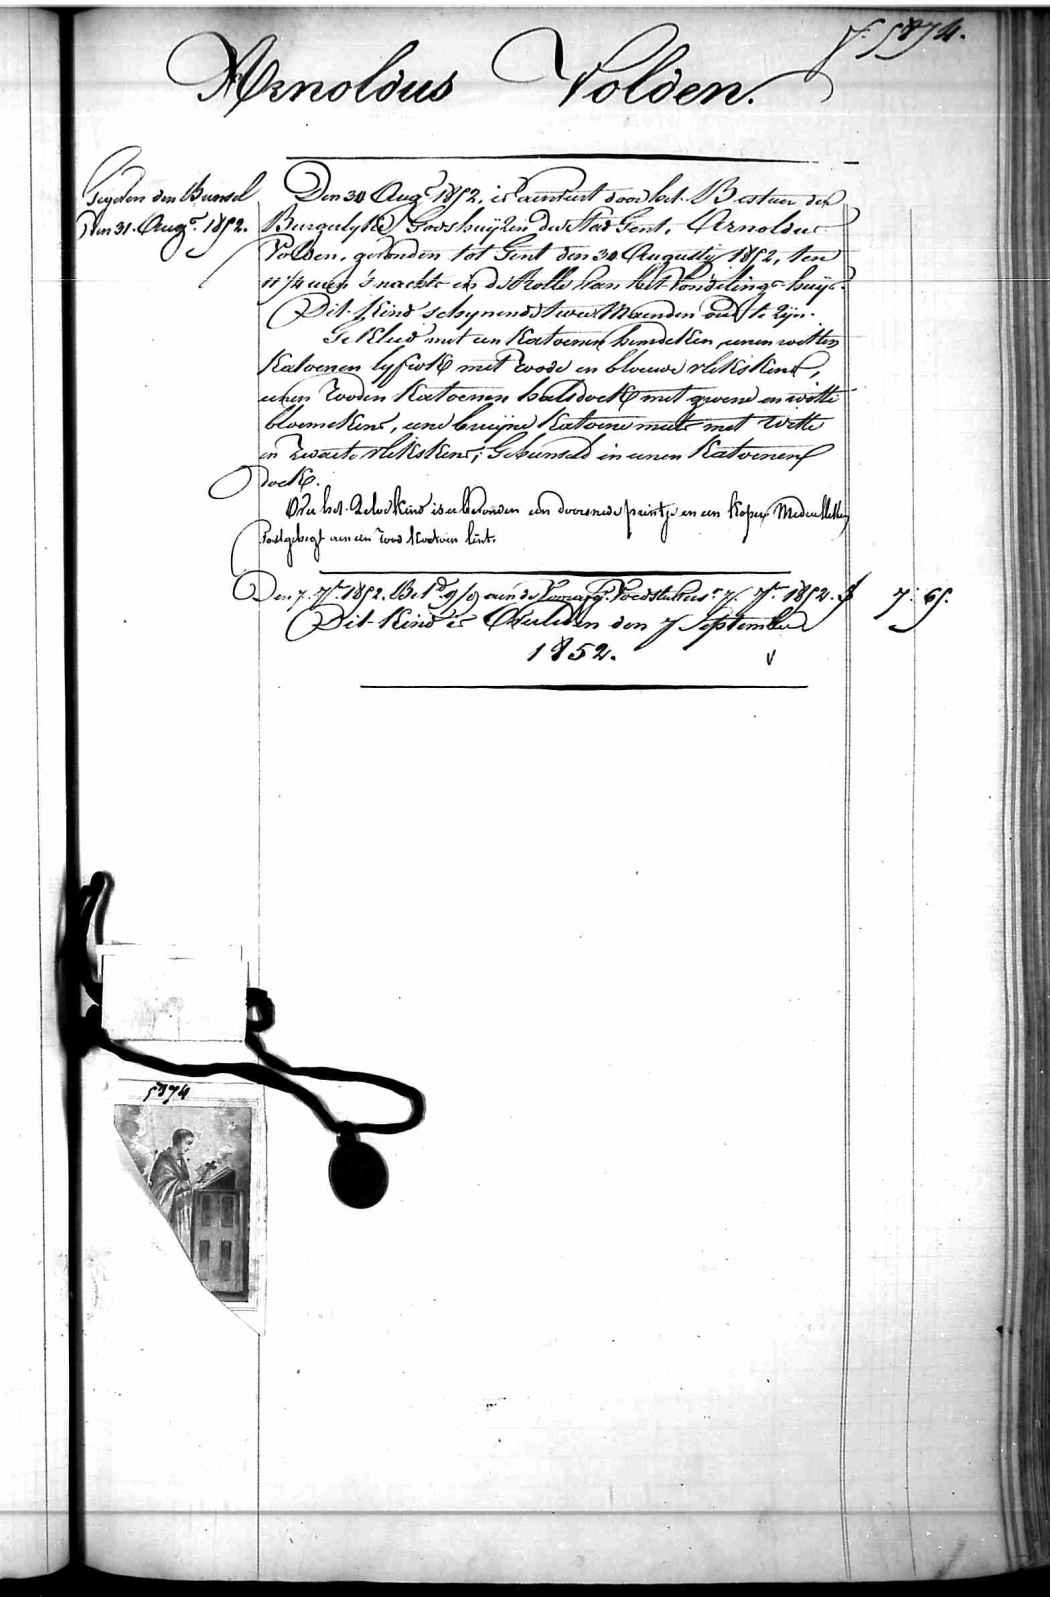 f. 5874.
Arnoldus Volden.
Gegeven den Bunsel
Den 31. Augs. 1852.
Den 30 Augs. 1852. is aenveert door het Bestuer der
Burgelyke Godshuyzen der Stad Gent, Arnoldus
Volden, gevonden tot Gent den 30 Augusty 1852, ten
11 1/4 uren 's nachts in de Rolle van het Vondelings-huys.
Dit kind schynende twee Maenden oud te zyn.
Gekleed met een Katoenen hemdeken, eenen witten
Katoenen lyfrok met roode en blouwe vlekskens,
eenen Rooden Katoenen halsdoek met groene en witte
bloemekens, eene bruyne Katoene muts met witte
en zwarte vlekskens; Gebunseld in eenen Katoenen
doek.
Over het zelve Kind is er bevonden een doorsnede printje en een koper Medaelleken
vastgehegt aen een rood koorden lint.
Den 7. 7br. 1852. Bet. aen de 7. 7br. 1852. f 7. 65.
Dit Kind is Overleden den 7 September
1852.
5874